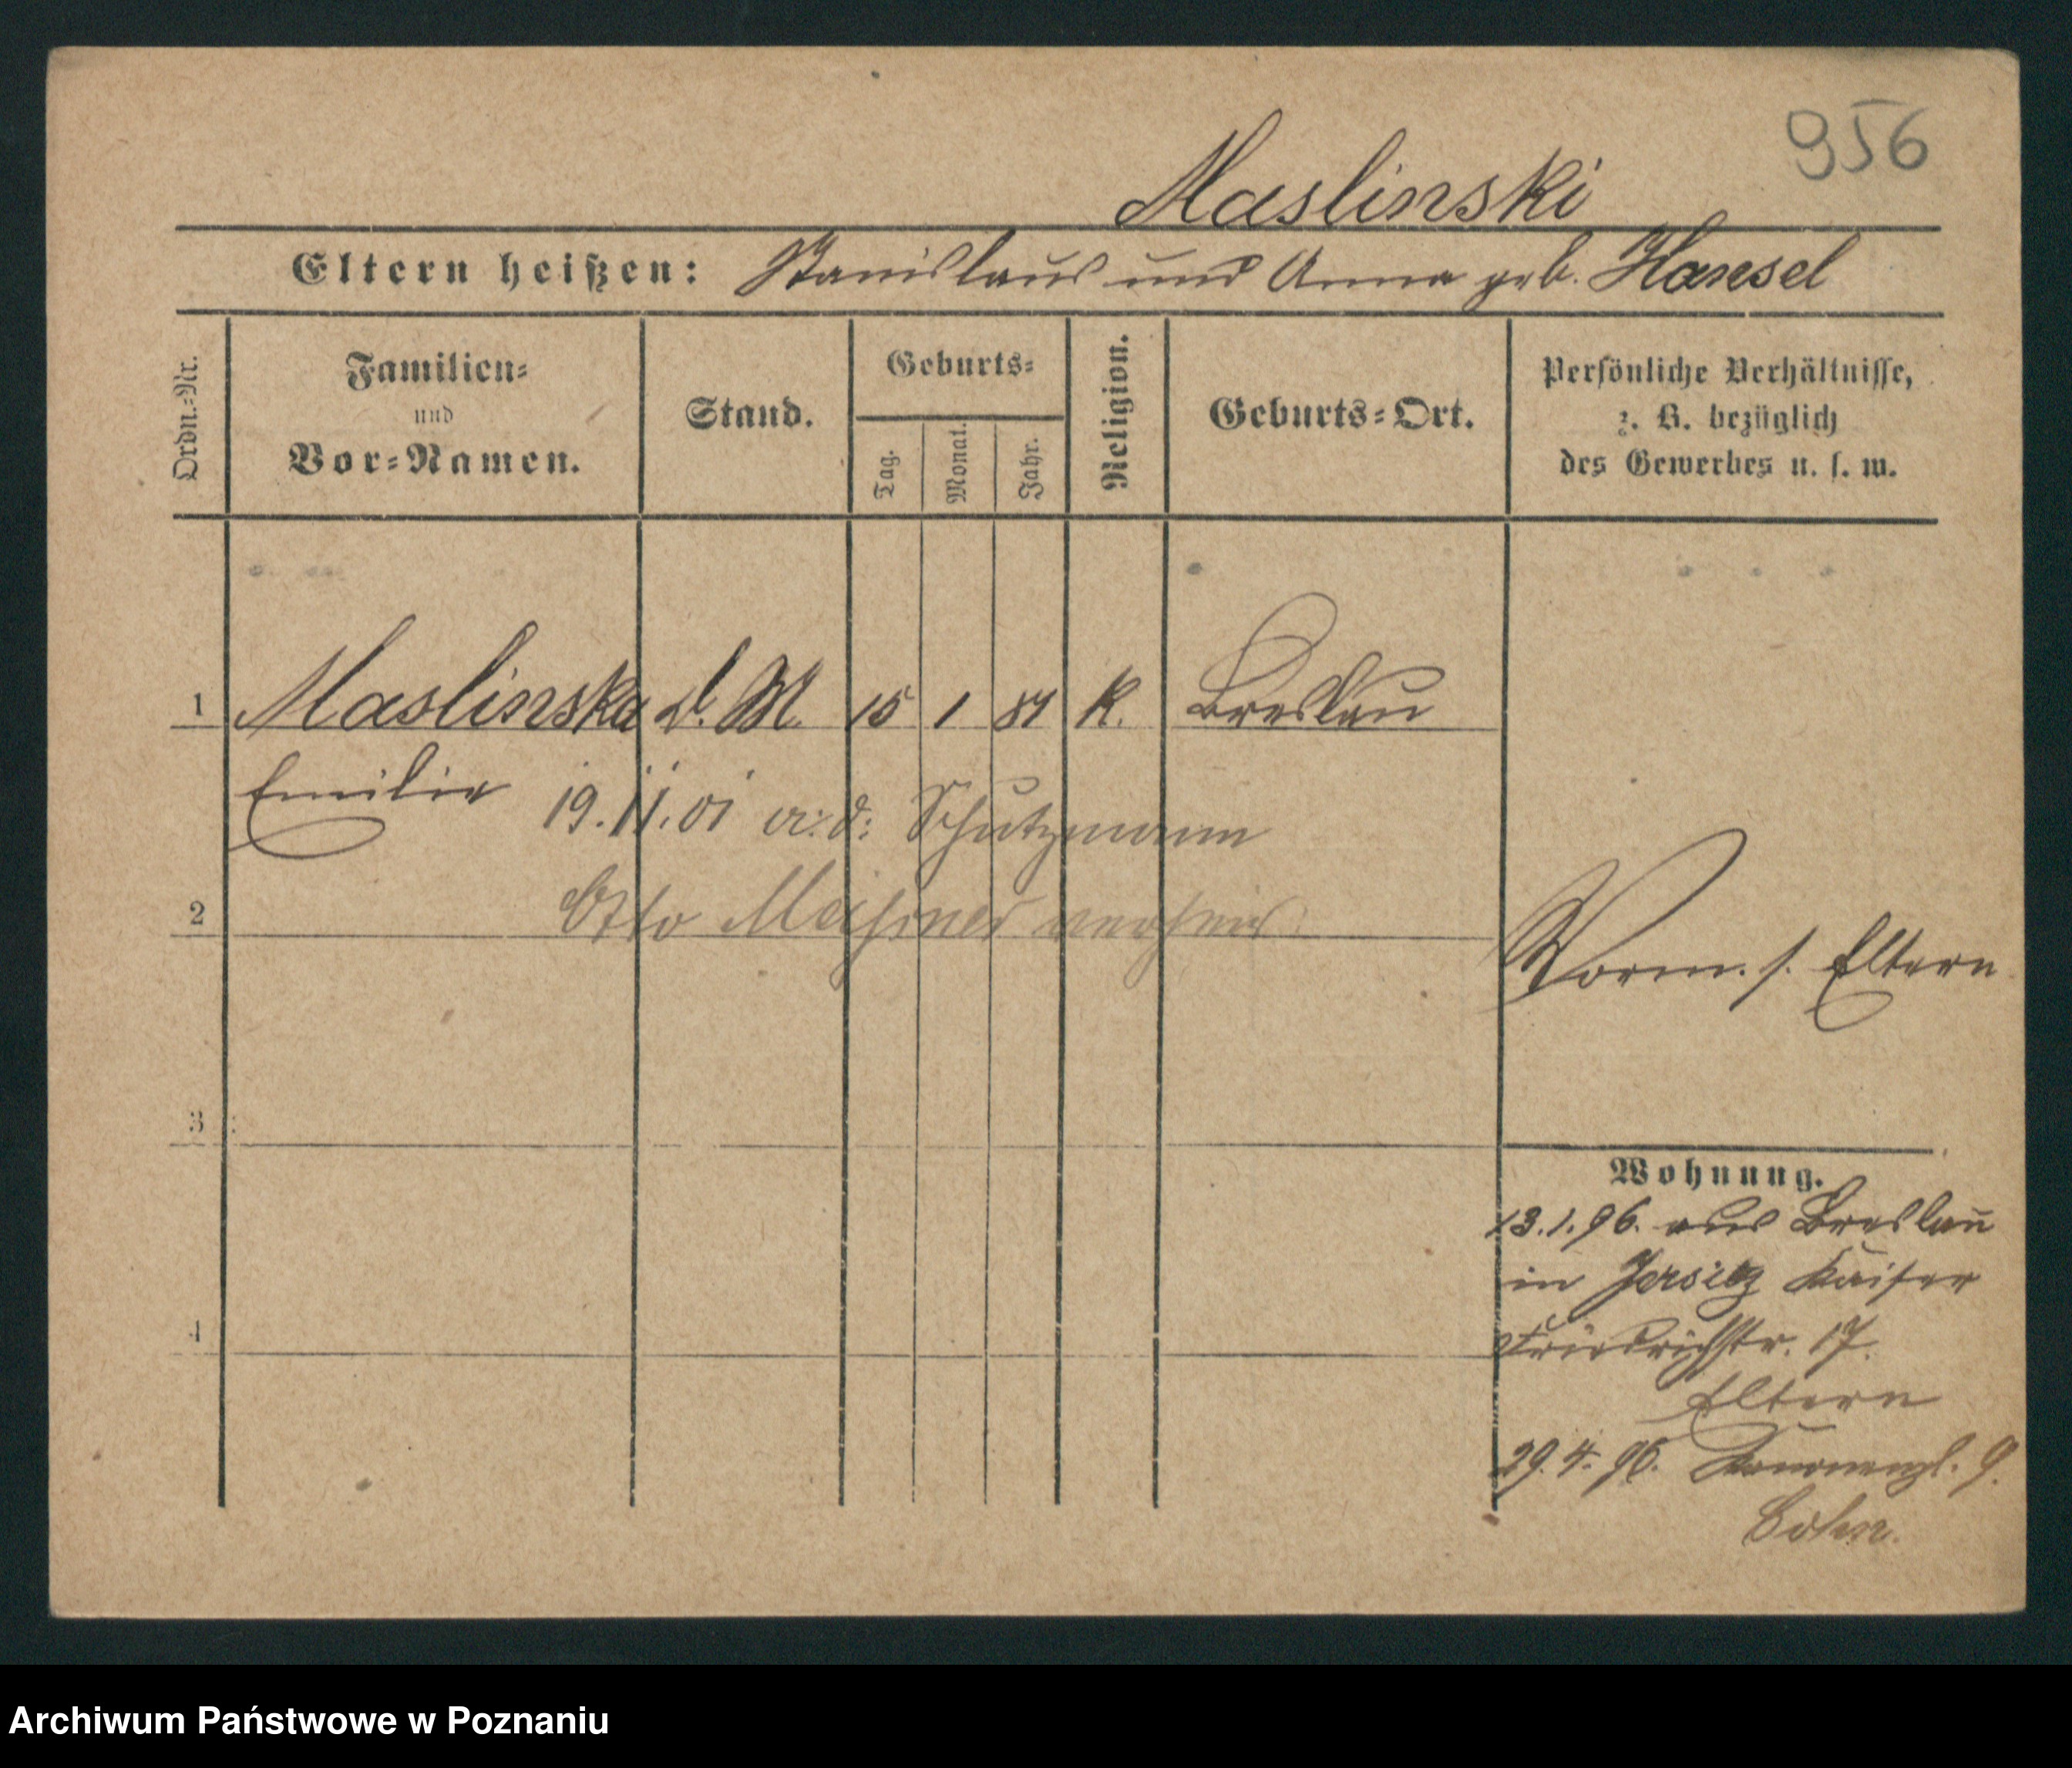 956
Maslinski
Eltern heißen: Stanislaus und Anna geb. Hansel
Ordn.-Nr.
Familien-
und
Vor-Namen.
Stand.
Geburts-
Tag.
Monat.
Jahr.
Religion.
Geburts-Ort.
Persönliche Verhältnisse,
z. B. bezüglich
des Gewerbes u. s. w.
1 Maslinska d. M. 15 1 81 K. Breslau
Emilie 19.11.01 a. d. Schutzmann
Otto Meissner verheir.
2
Norm. s. Eltern
3
Wohnung.
13.1.96. aus Breslau
in Jersitz Kaiser
Friedrichstr. 17.
Eltern
4
29.4.96. 9.
Cohn.
Archiwum Państwowe w Poznaniu